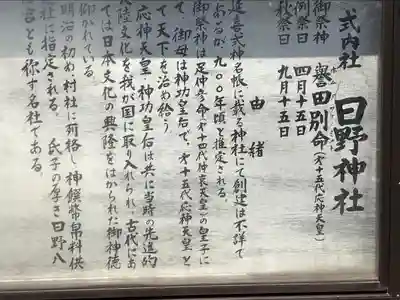 式内社 日野神社
御祭神 誉田別命(第十五代応神天皇)
例祭日 四月十五日
秋祭日 九月十五日
由緒
延喜式神名帳に載る神社にて創建は不詳で
あるが、九〇〇年頃と推定される。
御祭神は足仲彦命(第十四代仲哀天皇)の皇子に
て、御母は神功皇后で、第十五代応神天皇と
て天下を治め給う
応神天皇、神功皇后は共に当時の先進的
大陸文化を我が国に取り入れられ、古代にあ
ては日本文化の興隆をはかられた御神徳
仰がれている。
明治の初め、村社に列格し、神饌幣帛料供
社に指定される。氏子の厚き日野八
宮とも称す名社である。